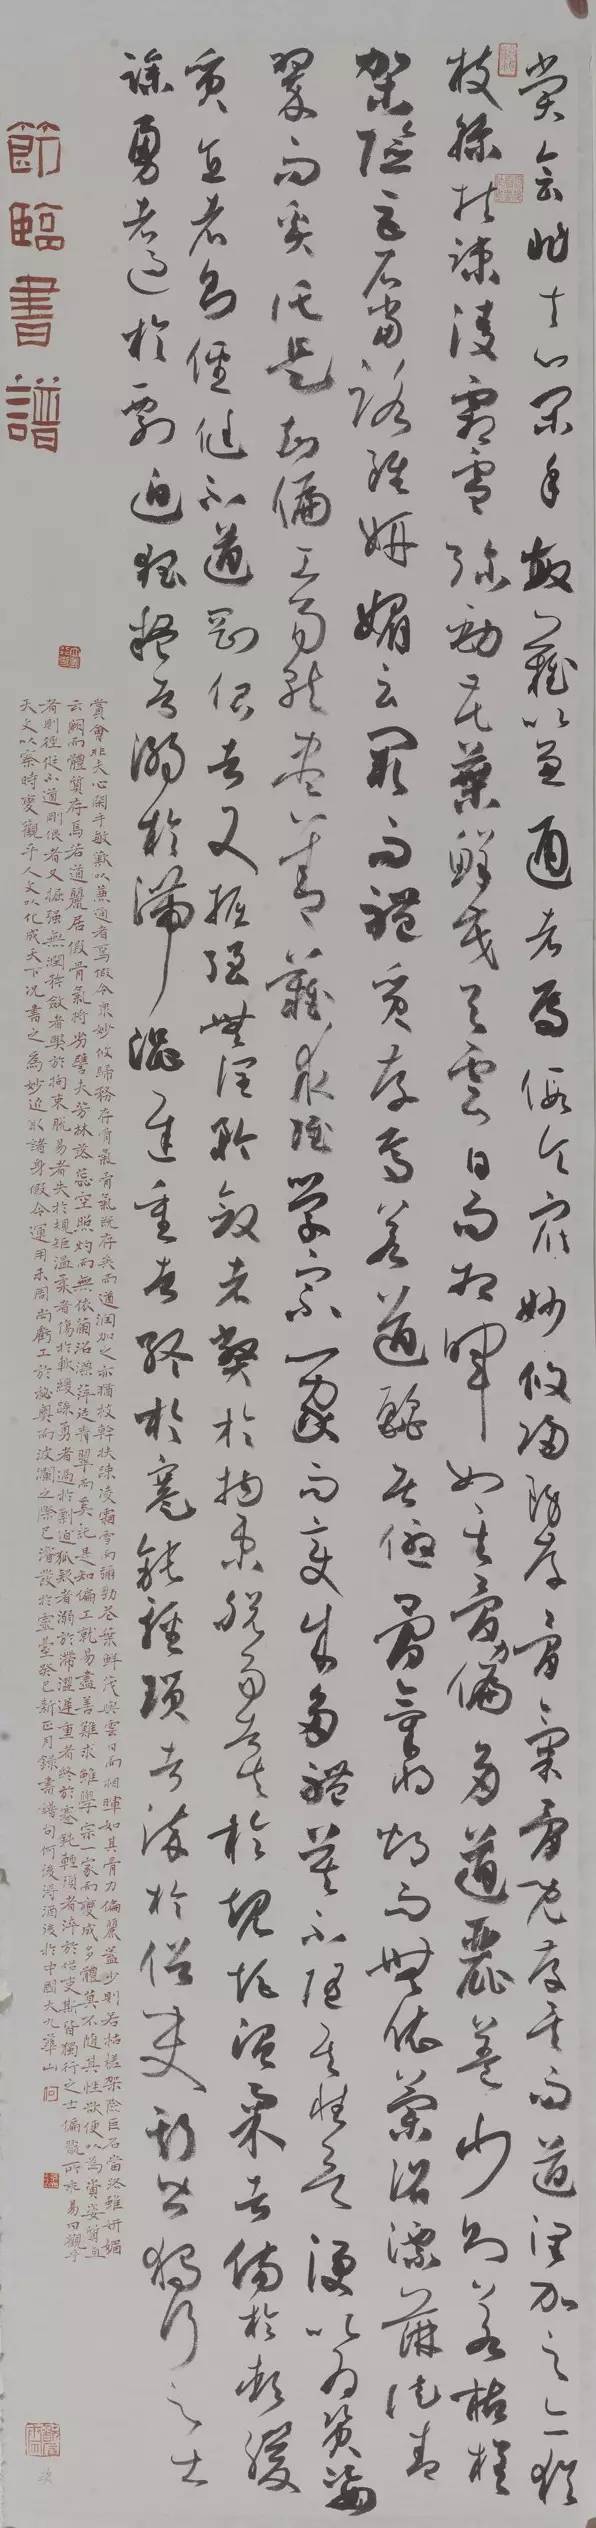 赏会非夫心闲手敏难以兼通者焉假令众妙攸归务存骨气骨既存矣而遒润加之亦犹
枝干扶疏凌霜雪而弥劲花叶鲜茂与云日而相晖如其骨力偏多遒丽盖少则若枯槎
架险巨石当路虽妍媚云阙而体质存焉若遒丽居优骨气将劣而无依兰沼漂萍徒青
翠而奚托是知偏工易就尽善难求虽学宗一家而变成多体莫不随其性欲便以为质姿
质直者则侄侹不遒刚佷者又掘强无润矜敛者弊于拘束脱易者失于规矩温柔者伤于软缓
躁勇者过于剽迫狐疑者溺于滞涩迟重者终于蹇钝轻琐者染于俗吏斯皆独行之士
節臨書譜
賞會非夫心閑手敏難以兼通者焉假令衆妙攸歸務存骨氣骨氣既存矣而遒潤加之亦猶枝幹扶疎凌霜雪而彌勁花葉鮮茂與雲日而相暉如其骨力偏多遒麗蓋少則若枯槎架險巨石當路雖妍媚
云闕而體質存焉若遒麗居優骨氣將劣譬夫芳林落蕊空照灼而無依蘭沼漂萍徒青翠而奚託是知偏工就易盡善難求雖學宗一家而變成多體莫不隨其性欲便以為資姿質直
者則徑侹不遒剛佷者又掘强無潤矜斂者弊於拘束脫易者失於規矩溫柔者傷於軟緩躁勇者過於剽迫狐疑者溺於滯澀遲重者終於蹇鈍輕瑣者淬於俗吏斯皆獨行之士偏翫所乖易曰觀乎
天文以察時變觀乎人文以化成天下况書之為妙近取諸身假令運用未周尚虧工於秘奥而波瀾之際已濬發於靈臺癸巳新正月錄書譜句何俊得酒後於中國大九華山